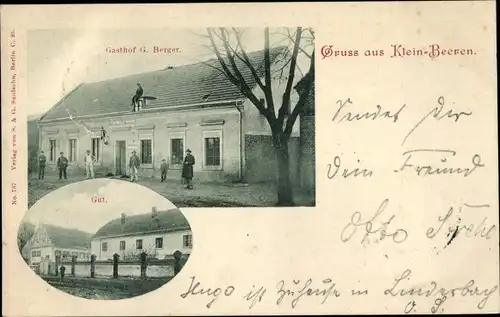 Gasthof G. Berger.
Gruss aus Klein-Beeren.
Gut.
No. 157 Verlag von S. & G. Saulsohn, Berlin C. 25.
Sendet Dir
Dein Freund
Otto
Hugo ist zuhause in Linderbach
O. S.